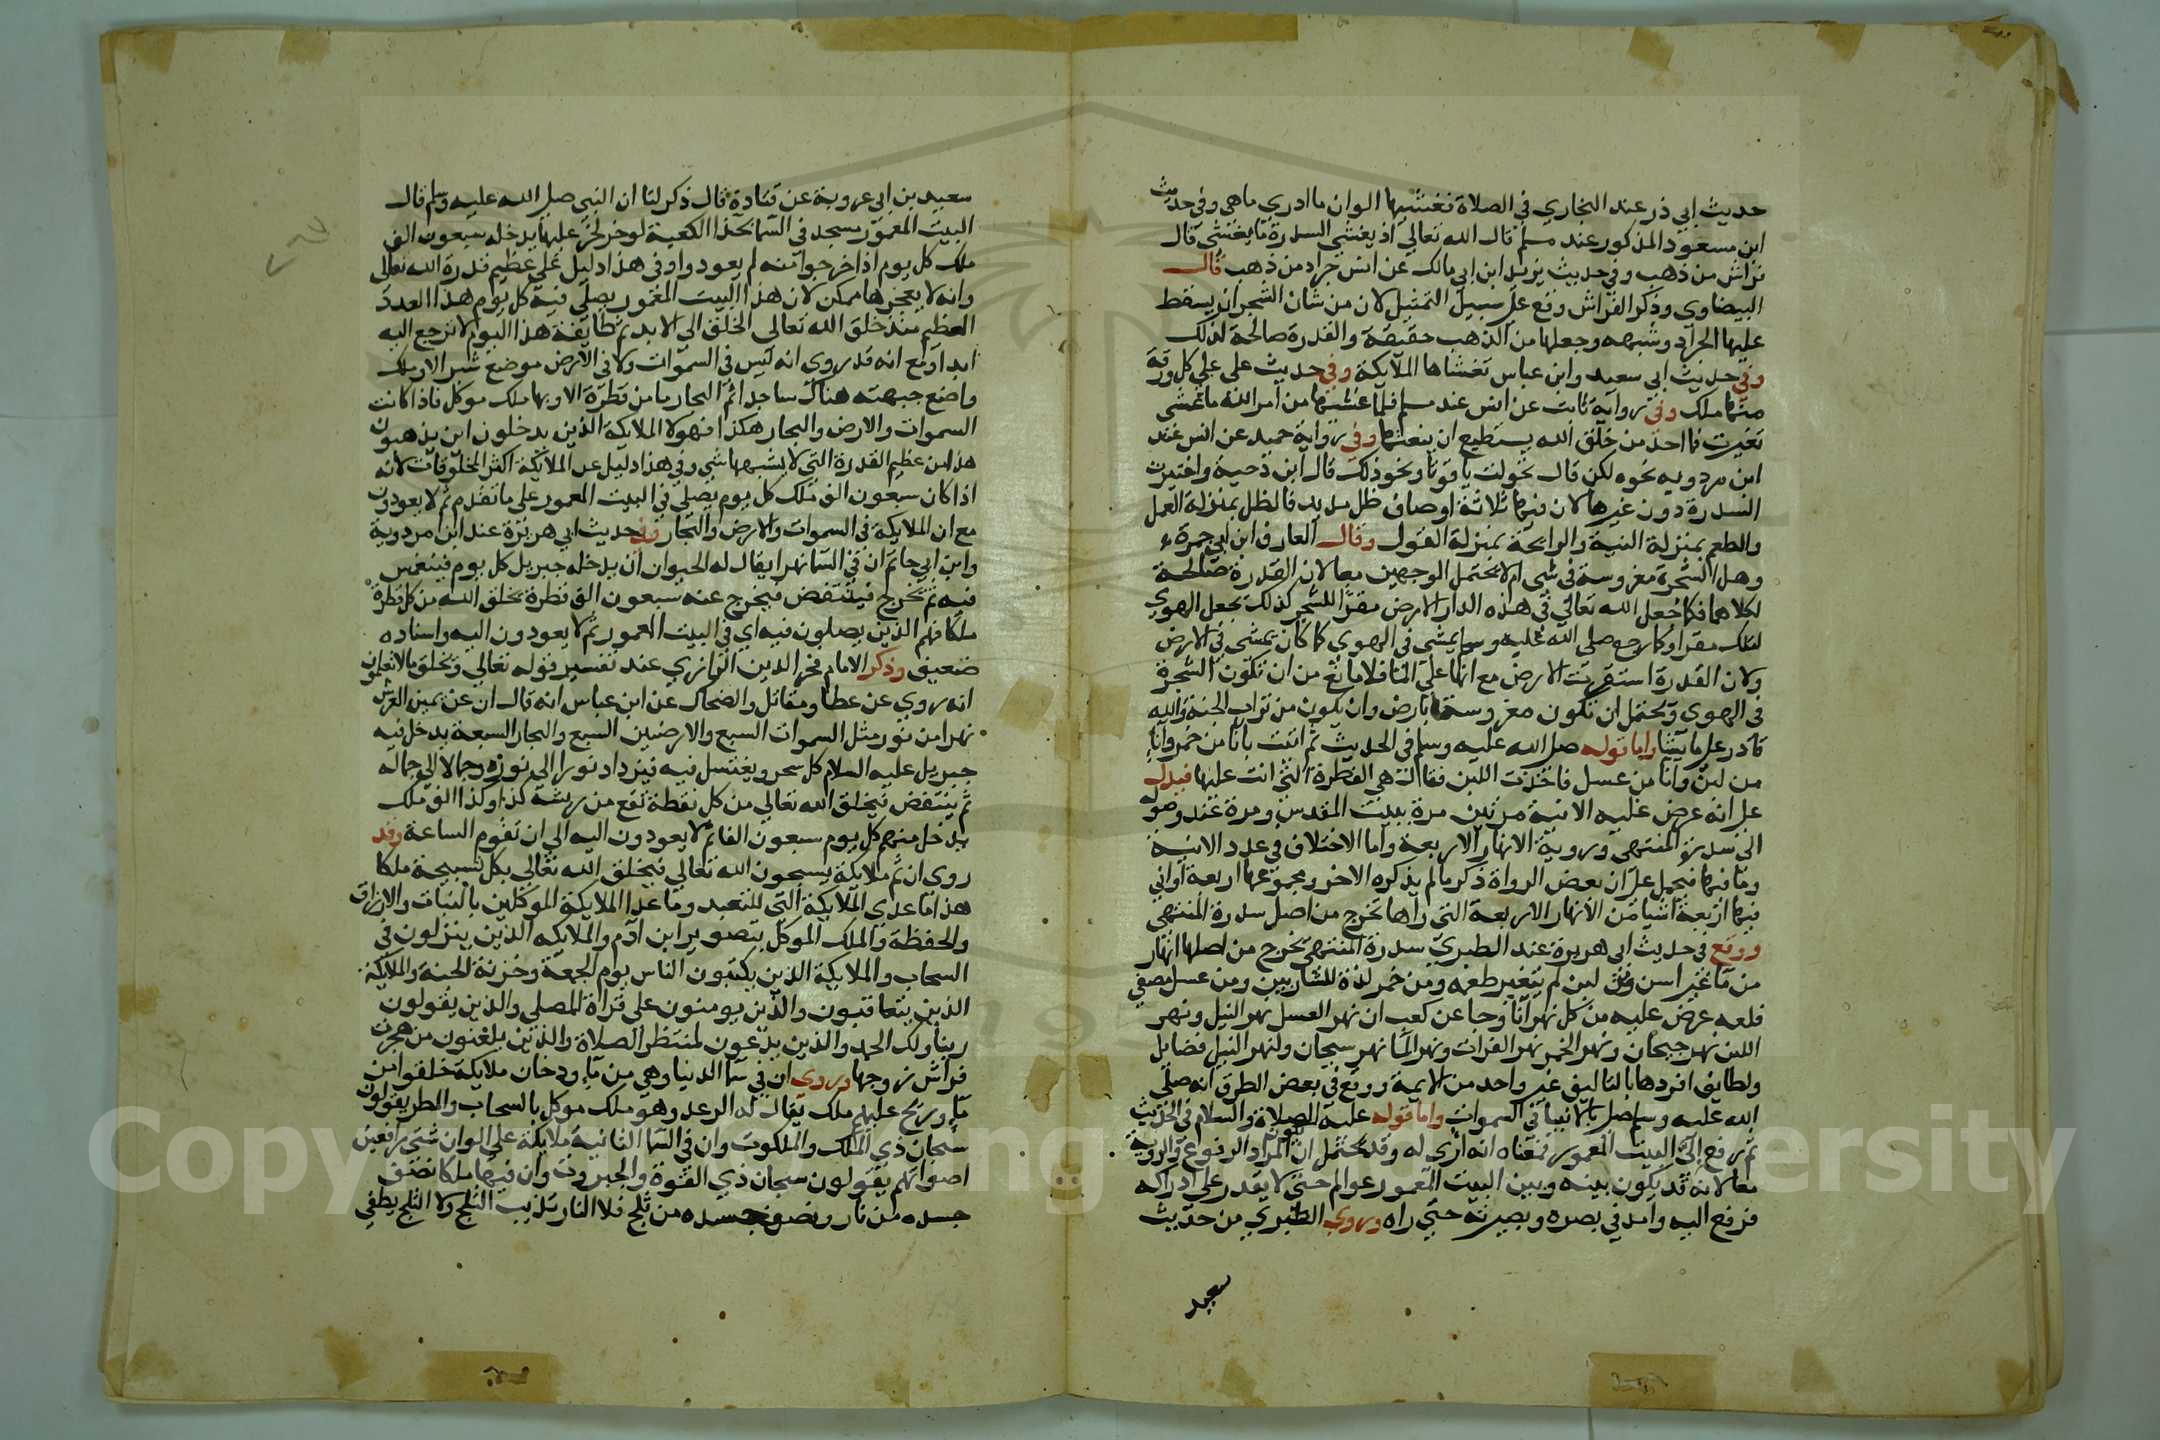 حديث ابي ذر عند البخاري في الصلاة فغشيها الوان ما ادري ما هي وفي حديث
ابن مسعود المذكور عند مسلم قال الله تعالي اذ يغشي السدرة ما يغشي قال
فراش من ذهب وفي حديث يزيد ابن ابي مالك عن انس جراد من ذهب قال
البيضاوي وذكر الفراش وقع علي سبيل التمثيل لان من شان الشجر ان يسقط
عليها الجراد وشبهه وجعلها من الذهب حقيقة والقدرة صالحة لذلك
وفي حديث ابي سعيد وابن عباس تغشاها الملايكة وفي حديث علي علي كل ورقة
منها ملك وفي رواية ثابت عن انس عند مسلم فلما غشيها من امر الله ما غشي
تغيرت فما احد من خلق الله يستطيع ان ينعتها وفي رواية حميد عن انس عند
ابن مردويه نحوه لكن قال تحولت ياقوتا ونحو ذلك قال ابن دحية واختيرت
السدرة دون غيرها لان فيها ثلاثة اوصاف ظل مديد فالظل بمنزلة العمل
والطعم بمنزلة النية والرايحة بمنزلة القول وقال العارف ابن ابي جمرة
وهل الشجرة مغروسة في شي ام لا يحتمل الوجهين معا لان القدرة صالحة
لكلاهما فكما جعل الله تعالي في هذه الدار الارض مقرا للشجر كذلك يجعل الهوي
لتلك مقرا وكما رجع صلي الله عليه وسلم يمشي في الهوي كما كان يمشي في الارض
ولان القدرة استقرت الارض مع انها علي الماء فلا مانع من ان تكون الشجرة
في الهوي ويحتمل ان تكون مغروسة بارض وان يكون من تراب الجنة والله
قادر علي ما يشا واما قوله صلي الله عليه وسلم في الحديث ثم اتيت باناء من خمر واناء
من لبن واناء من عسل فاخذت اللبن فقال هي الفطرة التي انت عليها فيدل
علي انه عرض عليه الانية مرتين مرة ببيت المقدس ومرة عند وصوله
الي سدرة المنتهي وروية الانهار الاربعة واما الاختلاف في عدد الانية
وما فيها فيحمل علي ان بعض الرواة ذكر ما لم يذكره الاخر ومجموعها اربعة اواني
فيها اربعة اشيا من الانهار الاربعة التي راها تخرج من اصل سدرة المنتهي
ووقع في حديث ابي هريرة عند الطبري سدرة المنتهي يخرج من اصلها انهار
من ماء غير اسن ومن لبن لم يتغير طعمه ومن خمر لذة للشاربين ومن عسل مصفي
فلعله عرض عليه من كل نهر اناء وجا عن كعب ان نهر العسل نهر النيل ونهر
اللبن نهر جيحان ونهر الخمر نهر الفرات ونهر الماء نهر سيحان ولنهر النيل فضايل
ولطايف افردها بالتاليف غير واحد من الايمة ووقع في بعض الطرق انه صلي
الله عليه وسلم صلي بالانبيا في السموات واما قوله عليه الصلاة والسلام في الحديث
ثم رفع الي البيت المعمور فمعناه انه اري له وقد يحتمل ان المراد الرفع والروية
معا لانه قد يكون بينه وبين البيت المعمور عوالم حتي لا يقدر علي ادراكه
فرفع اليه وامد في بصره وبصيرته حتي راه وروي الطبري من حديث
سعيد
سعيد بن ابي عروبة عن قتادة قال ذكر لنا ان النبي صلي الله عليه وسلم قال
البيت المعمور مسجد في السما بحذا الكعبة لو خر لخر عليها يدخله سبعون الف
ملك كل يوم اذا خرجوا منه لم يعودوا وفي هذا دليل علي عظيم قدرة الله تعالي
وانه لا يعجزها ممكن لان هذا البيت المعمور يصلي فيه كل يوم هذا العدد
العظيم منذ خلق الله تعالي الخلق الي الابد ثم طايفة هذا اليوم لا ترجع اليه
ابدا ومع انه قد روي انه ليس في السموات ولا في الارض موضع شبر الا وملك
واضع جبهته هناك ساجدا ثم البحار ما من قطرة الا وبها ملك موكل فاذا كانت
السموات والارض والبحار هكذا فهولا الملايكة الذين يدخلون اين يذهبون
هذا من عظيم القدرة التي لا يشبهها شي وفي هذا دليل علي الملايكة اكثر المخلوقات لانه
اذا كان سبعون الف ملك كل يوم يصلي في البيت المعمور علي ما تقدم ثم لا يعودون
مع ان الملايكة في السموات والارض والبحار وفي حديث ابي هريرة عند ابن مردوية
وابن ابي حاتم ان في السما نهرا يقال له الحيوان ان يدخله جبريل كل يوم فينغمس
فيه ثم يخرج فينتفض فيخرج عنه سبعون الف قطرة يخلق الله من كل قطرة
ملكا فهم الذين يصلون فيه اي في البيت المعمور ثم لا يعودون اليه واسناده
ضعيف وذكر الامام فخر الدين الرازي عند تفسير قوله تعالي ويخلق ما لا تعلمون
انه روي عن عطا ومقاتل والضحاك عن ابن عباس انه قال ان عن يمين العرش
نهرا من نور مثل السموات السبع والارضين السبع والبحار السبعة يدخل فيه
جبريل عليه السلام كل سحر ويغتسل فيه فيزداد نورا الي نوره وجمالا الي جماله
ثم ينتفض فيخلق الله تعالي من كل نقطة تقع من ريشه كذا وكذا الف ملك
يدخل منهم كل يوم سبعون الفا ثم لا يعودون اليه الي ان تقوم الساعة وقد
روي ان ثم ملايكة يسبحون الله تعالي فيخلق الله تعالي بكل تسبيحة ملكا
هذا ما عدي الملايكة التي للتعبد وما عدا الملايكة الموكلين بالنبات والارزاق
والحفظة والملك الموكل بتصوير ابن ادم والملايكه الذين ينزلون في
السحاب والملايكة الذين يكتبون الناس يوم الجمعة وخزنة الجنة والملايكة
الذين يتعاقبون والذين يومنون علي قراة المصلي والذين يقولون
ربنا ولك الحمد والذين يدعون لمنتظر الصلاة والذين يلعنون من هجرت
فراش زوجها وروي ان في سما الدنيا وهي من ماء ودخان ملايكة خلقوا من
ماء وريح عليهم ملك يقال له الرعد وهو ملك موكل بالسحاب والمطر يقولون
سبحان ذي الملك والملكوت وان في السما الثانية ملايكة علي الوان شتي رافعين
اصواتهم يقولون سبحان ذي القوة والجبروت وان فيها ملكا نصف
جسده من نار ونصف جسده من ثلج فلا النار تذيب الثلج ولا الثلج يطفي